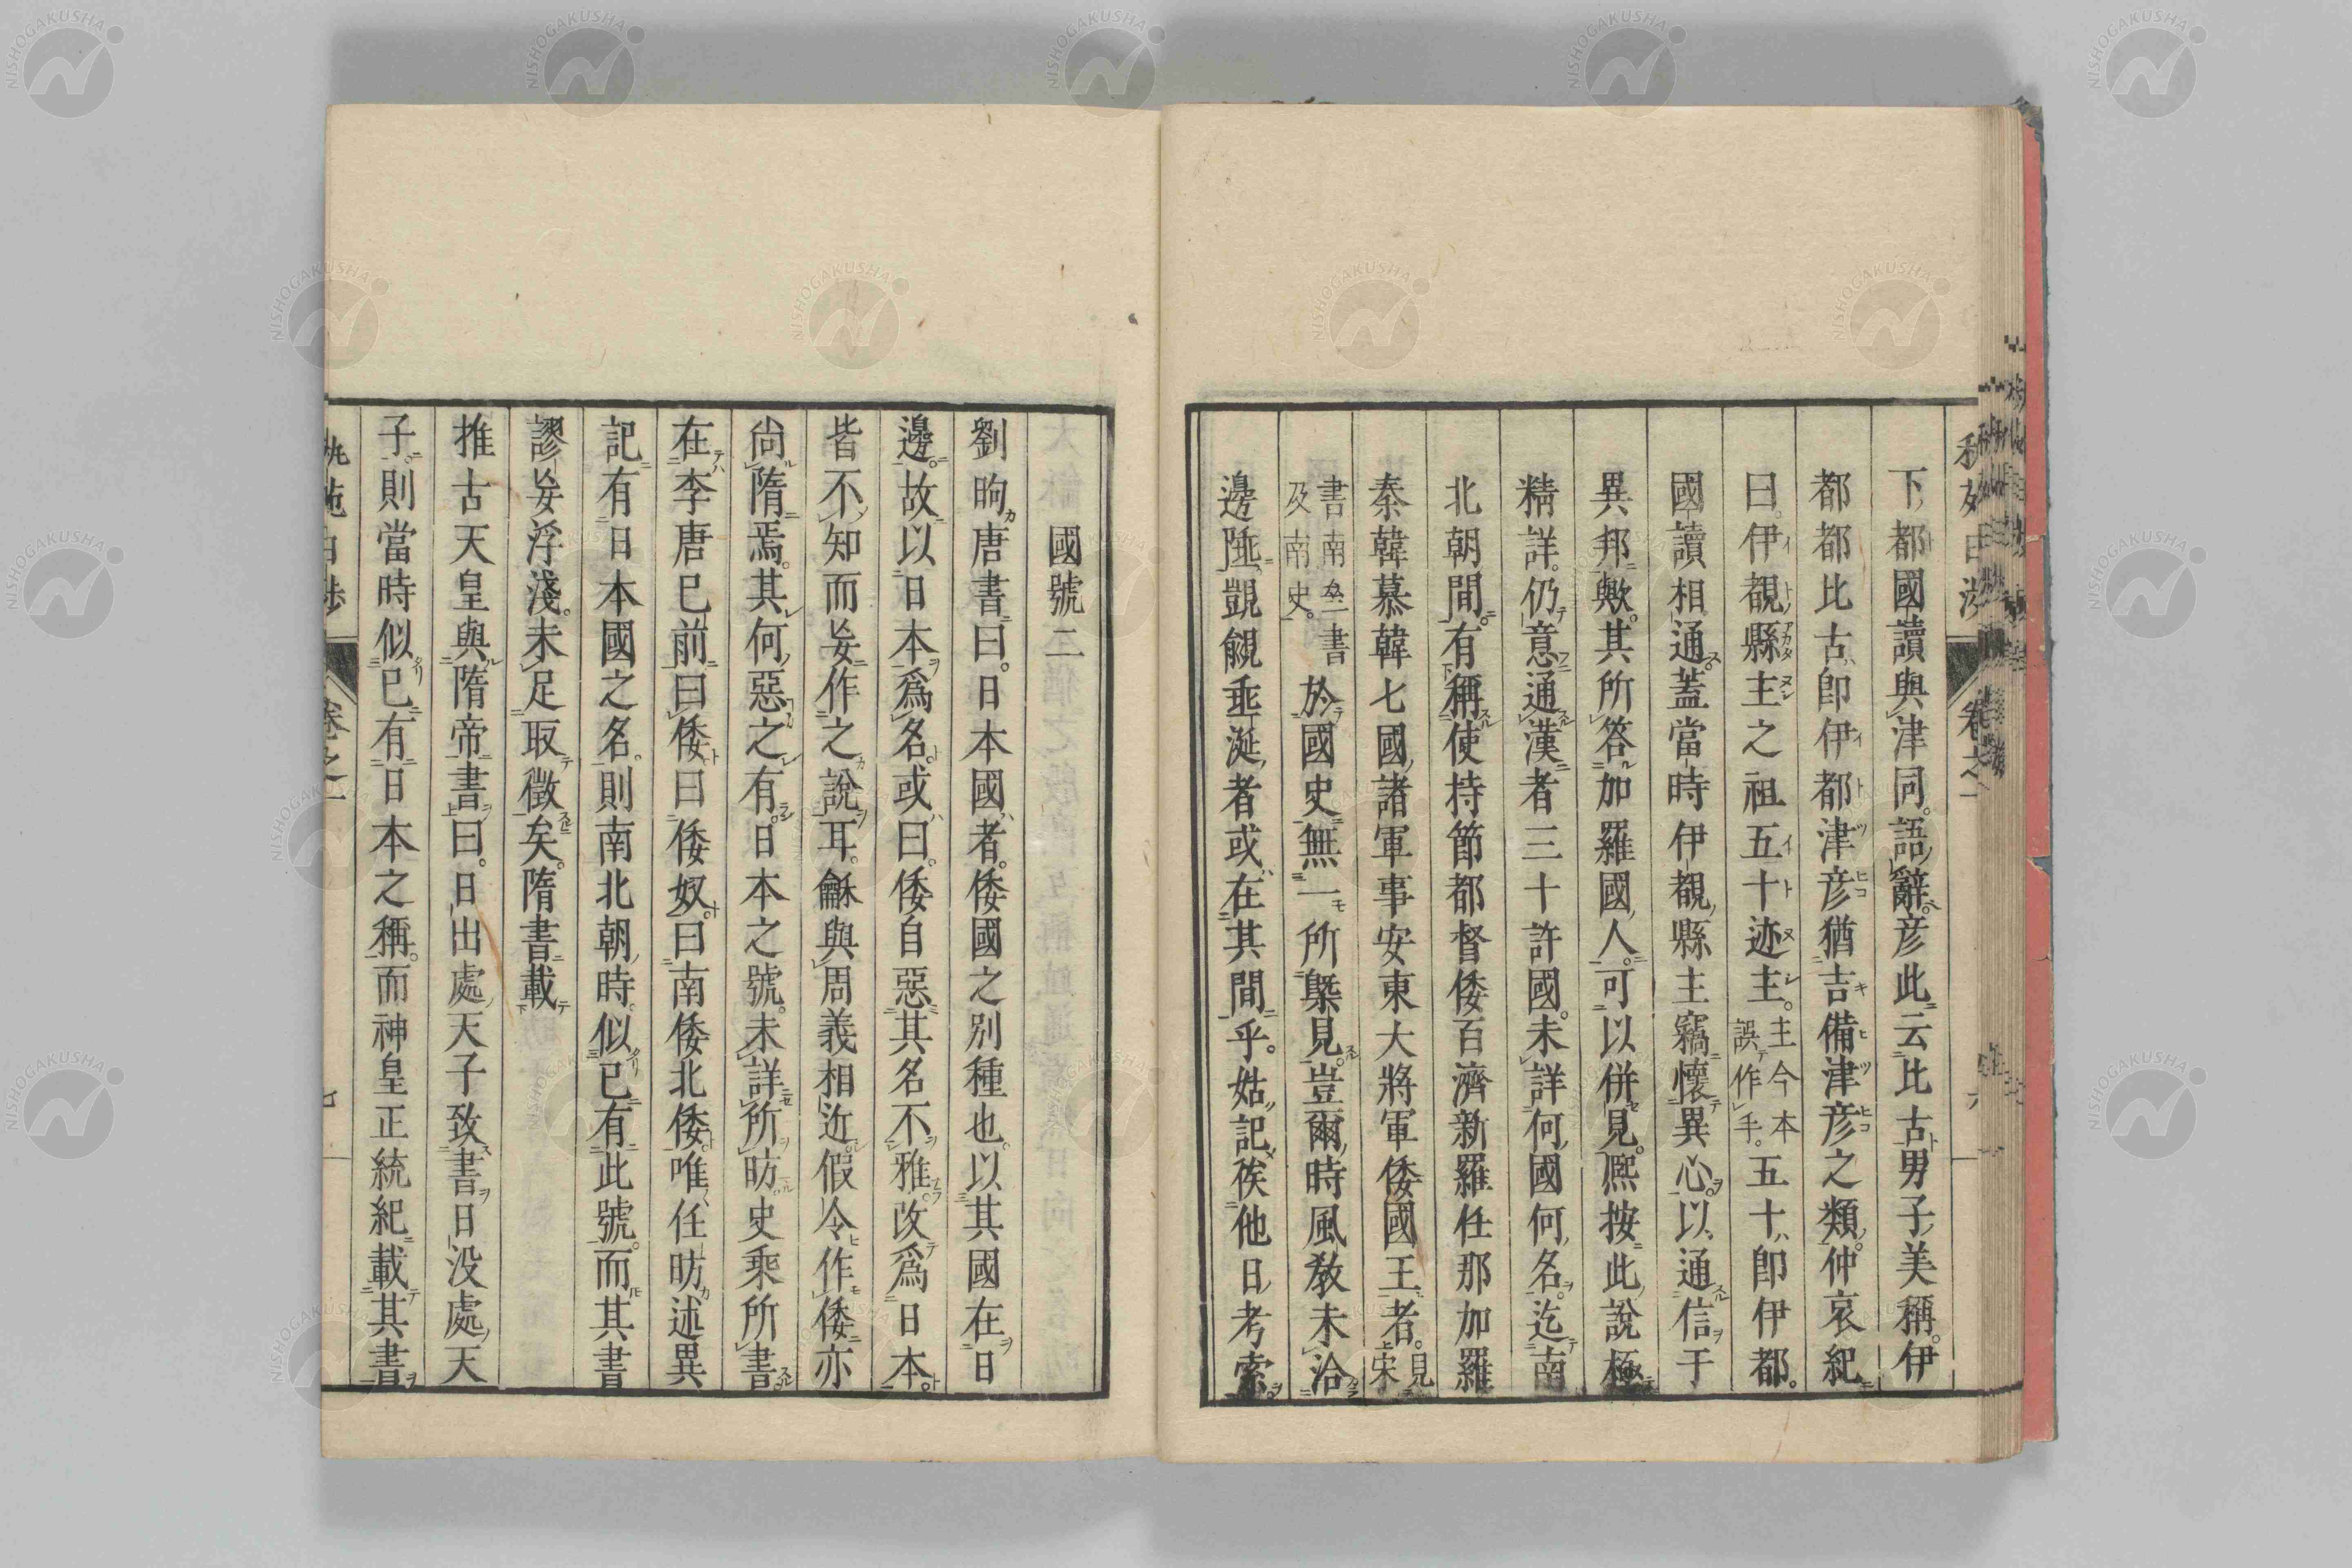 下都國讀與津同。語辭。彦此云比古男子美稱。伊
都都比古即伊都津彦猶吉備津彦之類。仲哀紀
曰。伊覩縣主之祖五十迹主。主今本誤作手。五十即伊都。
國讀相通。蓋當時伊覩縣主竊懷異心。以通信于
異邦歟。其所答加羅國人。可以併見。熈按此說極
精詳。仍意通漢者三十許國。未詳何國何名。迄南
北朝間。有稱使持節都督倭百濟新羅任那加羅
秦韓慕韓七國諸軍事安東大將軍倭國王者。見宋
書南齊書及南史。於國史無一所槩見。豈爾時風敎未洽
邊陲覬覦垂涎者或在其間乎。姑記俟他日考索。
國號二
劉昫唐書曰。日本國者。倭國之別種也。以其國在日
邊。故以日本爲名。或曰。倭自惡其名不雅。改爲日本。
皆不知而妄作之說耳。龢與周義相近。假令作倭亦
尙隋焉。其何惡之有。日本之號。未詳所昉史乘所書
在李唐已前曰倭曰倭奴。曰南倭北倭。唯任昉述異
記有日本國之名。則南北朝時。似已有此號。而其書
謬妄浮淺。未足取徵矣。隋書載
推古天皇與隋帝書曰。日出處天子致書日没處天
子。則當時似已有日本之稱。而神皇正統紀載其書
卷之一